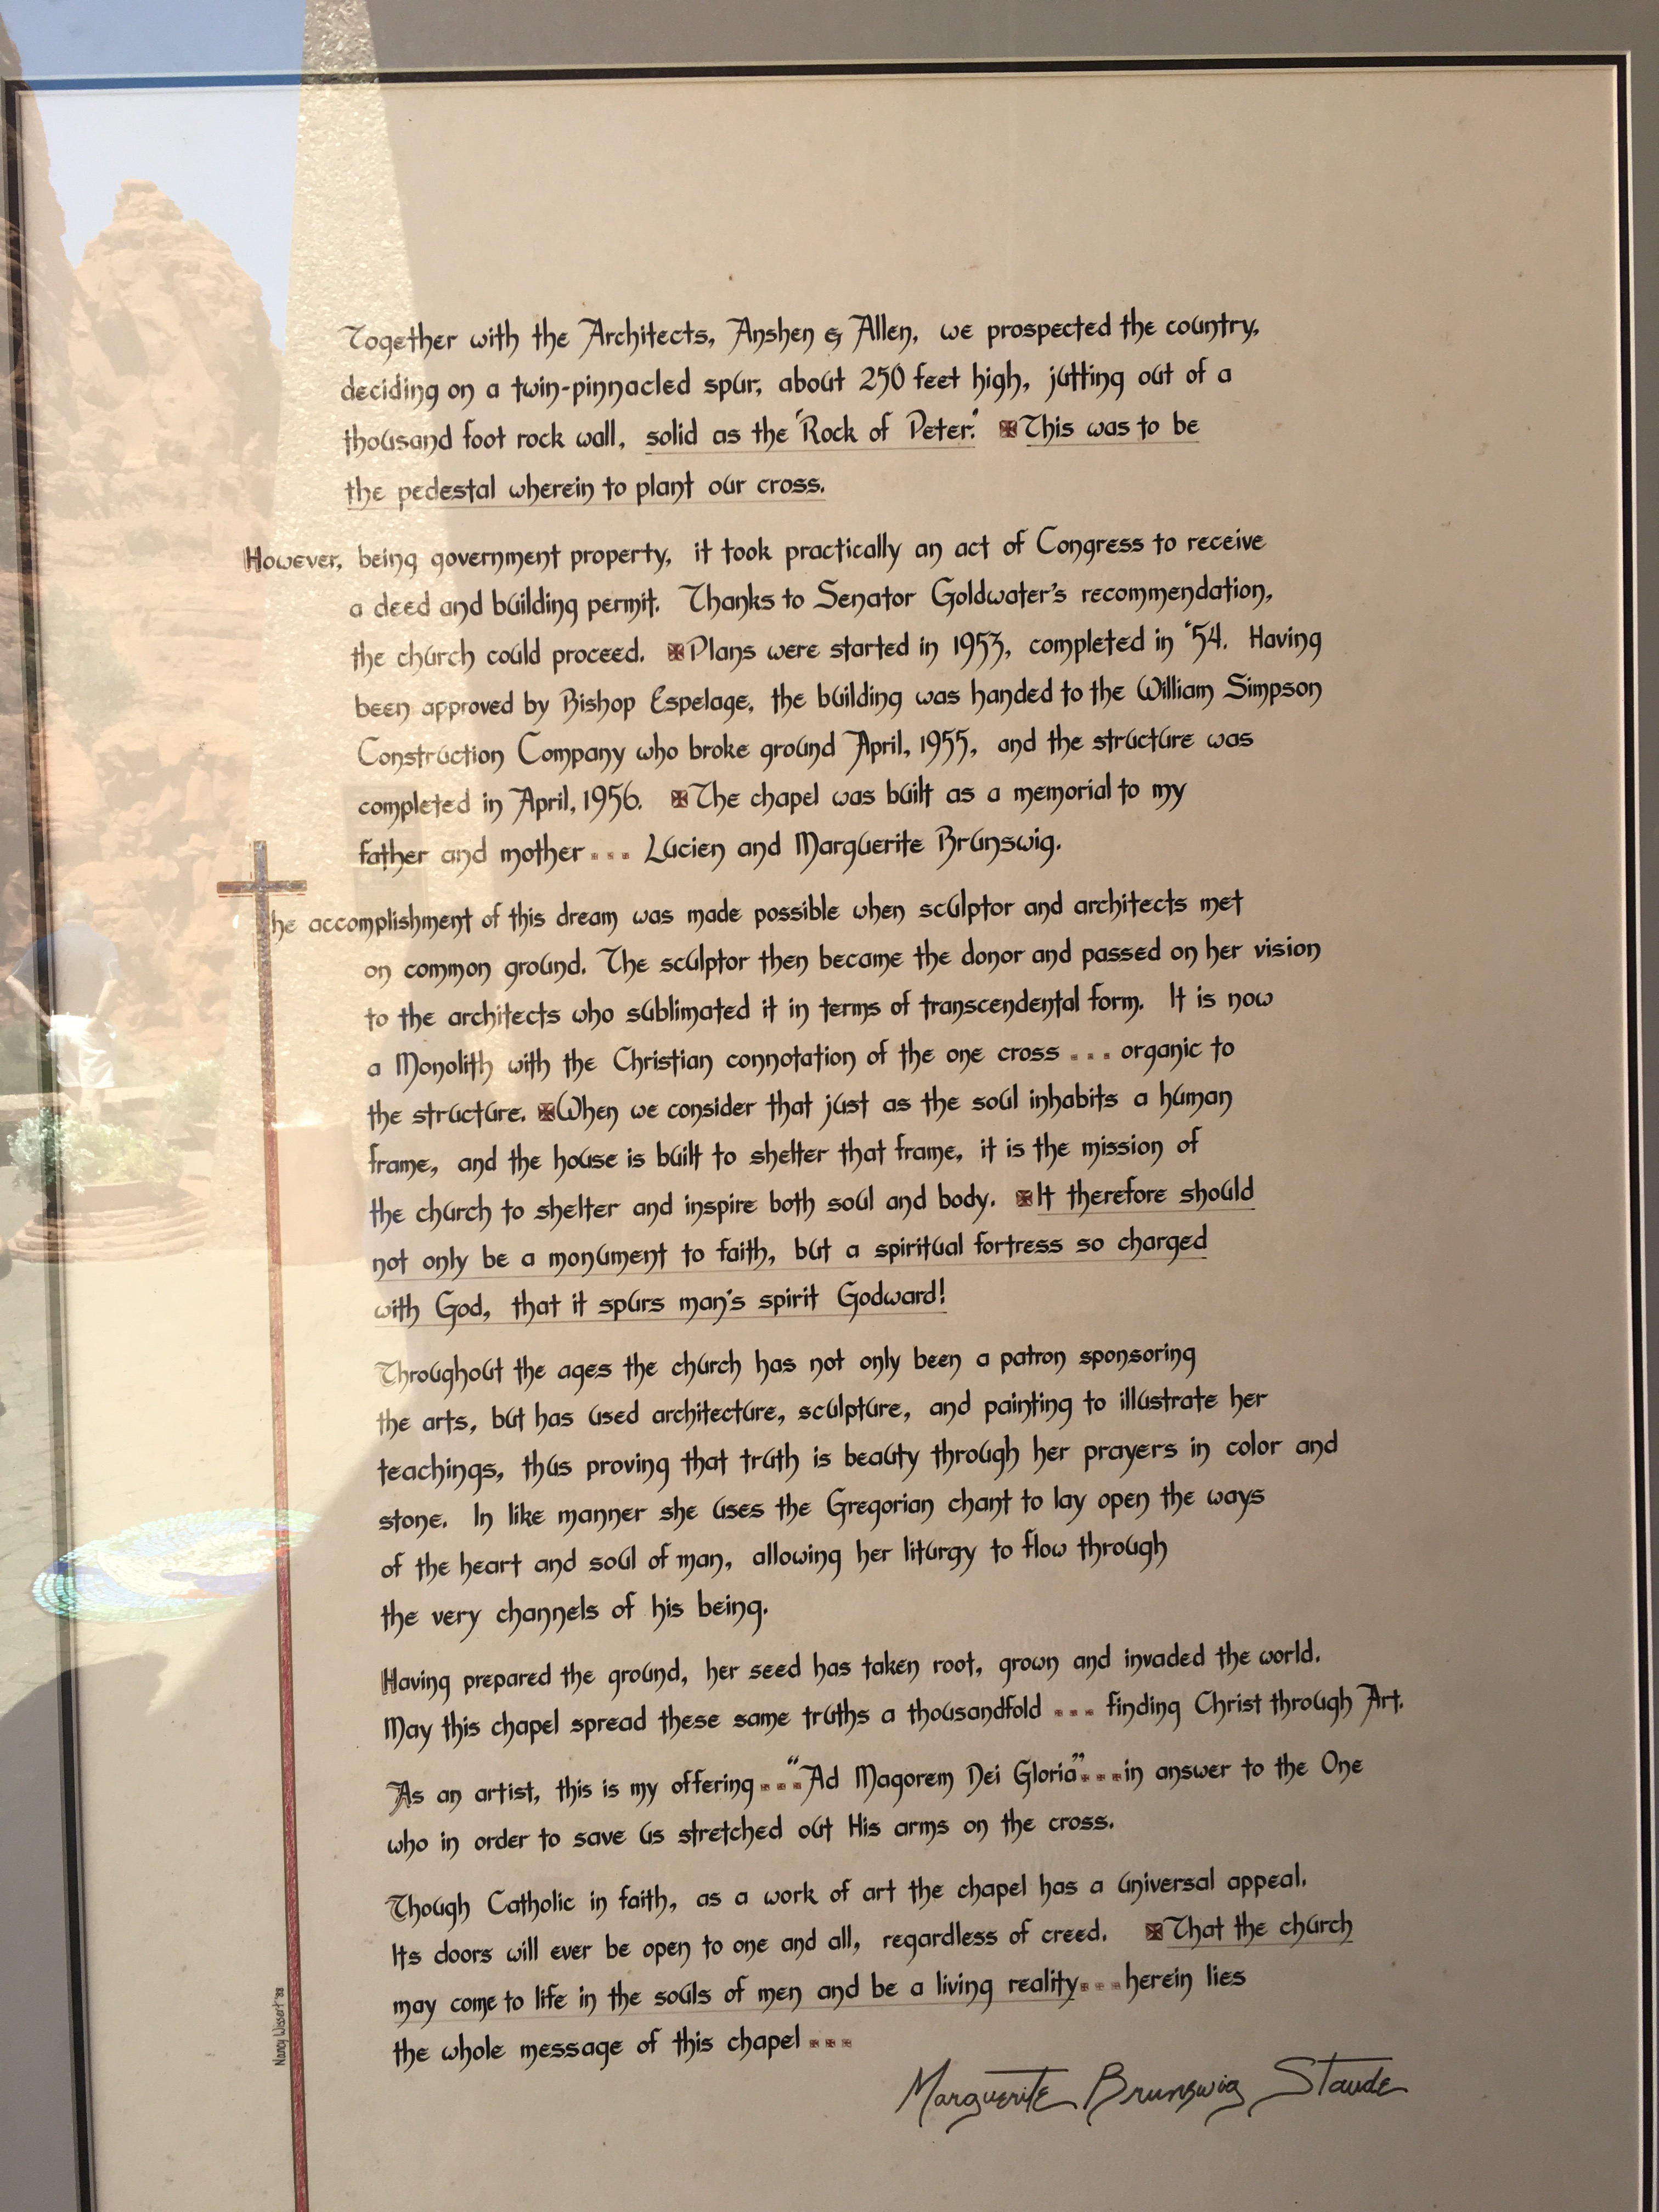 Together with the Architects, Anshen & Allen, we prospected the country,
deciding on a twin-pinnacled spur, about 250 feet high, jutting out of a
thousand foot rock wall, solid as the "Rock of Peter." ✠This was to be
the pedestal wherein to plant our cross.
However, being government property, it took practically an act of Congress to receive
a deed and building permit. Thanks to Senator Goldwater's recommendation,
the church could proceed. ✠Plans were started in 1953, completed in '54. Having
been approved by Bishop Espelage, the building was handed to the William Simpson
Construction Company who broke ground April, 1955, and the structure was
completed in April, 1956. ✠The chapel was built as a memorial to my
father and mother... Lucien and Marguerite Brunswig.
The accomplishment of this dream was made possible when sculptor and architects met
on common ground. The sculptor then became the donor and passed on her vision
to the architects who sublimated it in terms of transcendental form. It is now
a Monolith with the Christian connotation of the one cross ... organic to
the structure. ✠When we consider that just as the soul inhabits a human
frame, and the house is built to shelter that frame, it is the mission of
the church to shelter and inspire both soul and body. ✠It therefore should
not only be a monument to faith, but a spiritual fortress so charged
with God, that it spurs man's spirit Godward!
Throughout the ages the church has not only been a patron sponsoring
the arts, but has used architecture, sculpture, and painting to illustrate her
teachings, thus proving that truth is beauty through her prayers in color and
stone. In like manner she uses the Gregorian chant to lay open the ways
of the heart and soul of man, allowing her liturgy to flow through
the very channels of his being.
Having prepared the ground, her seed has taken root, grown and invaded the world.
May this chapel spread these same truths a thousandfold ... finding Christ through Art.
As an artist, this is my offering..."Ad Magorem Dei Gloria"...in answer to the One
who in order to save us stretched out His arms on the cross.
Though Catholic in faith, as a work of art the chapel has a universal appeal.
Its doors will ever be open to one and all, regardless of creed. ✠That the church
may come to life in the souls of men and be a living reality...herein lies
the whole message of this chapel...
Marguerite Brunswig Staude
Nancy Wissert '88